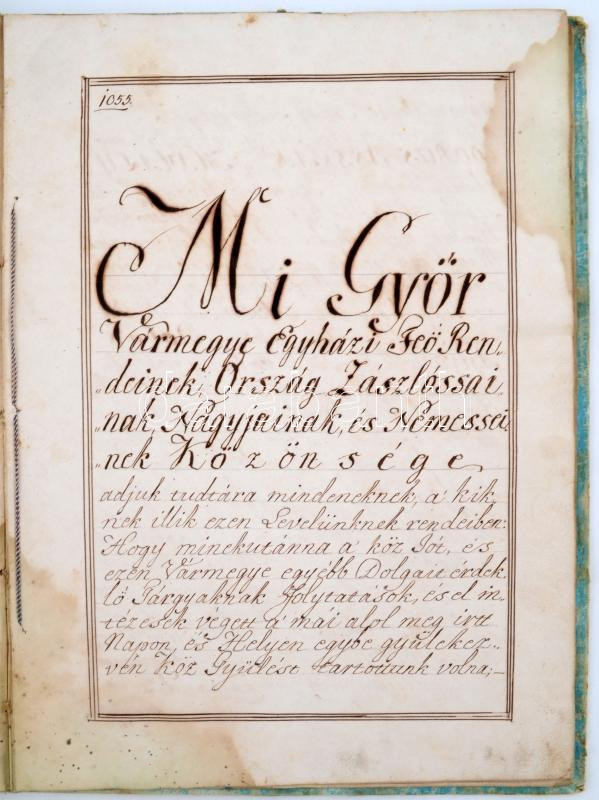 1055.
Mi Győr
Vármegye Egyházi Feö Ren„
„deinek, Ország Zászlóssai„
„nak, Nagyjainak, és Nemessei„
„nek Közönsége
adjuk tudtára mindeneknek, a' kik„
nek illik ezen Levelünknek rendeiben:
Hogy minekutánna a' köz Jót, és
ezen Vármegye egyébb Dolgait érdek„
lő Tárgyaknak folytatások, és el in„
tézések végett a' mái alol meg irtt
Napon, és Helyen egybe gyülekez„
vén Köz Gyülést tartottunk volna;